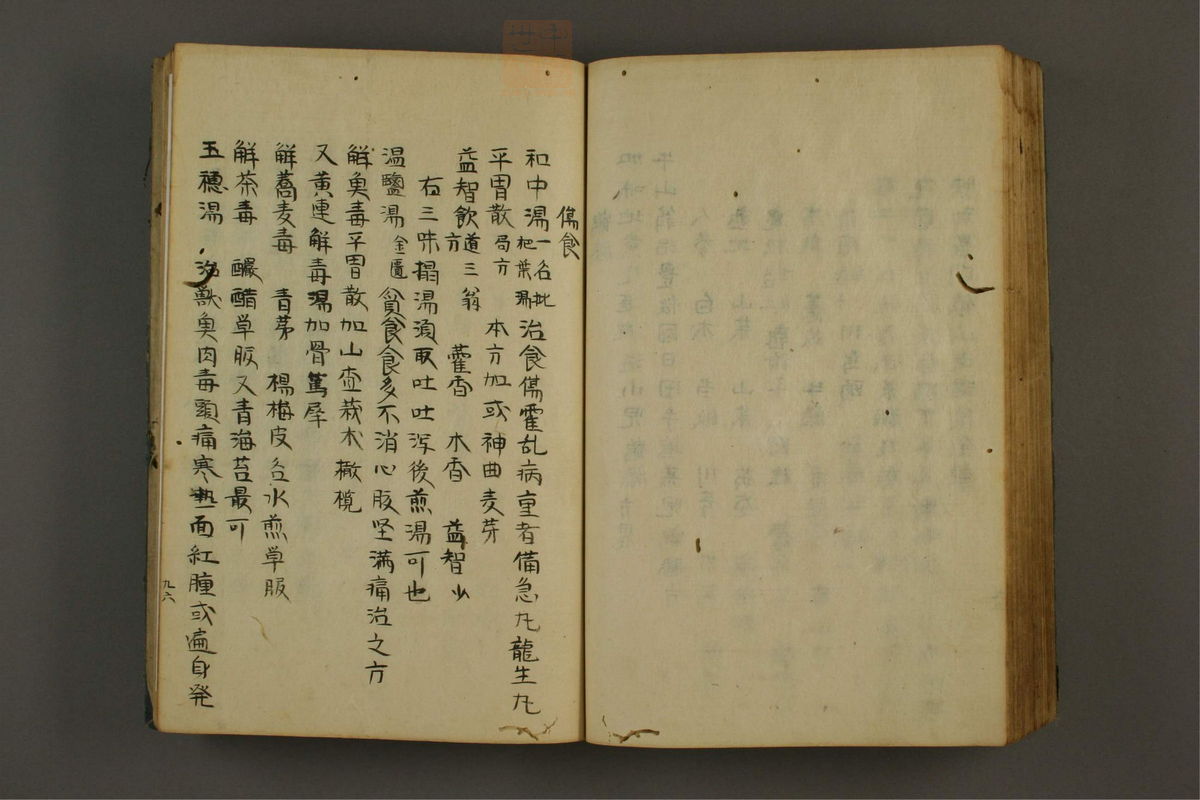 傷食
和中湯一名枇杷葉湯 治食傷霍乱病重者備急丸龍生丸
平胃散局方 本方加或神曲麦芽
益智飲道三翁方 藿香 木香 益智少
右三味搨湯須臾吐吐泻後煎湯可也
温鹽湯金匱 貪食食多不消心腹坚满痛治之方
解奠毒平胃散加山查莪朮橄欖
又黄連解毒湯加骨篤犀
解蕎麦毒 青茅 楊梅皮各水煎草服
解茶毒 醲醋草服又青海苔最可
五穂湯 治獣魚肉毒頭痛寒熱面紅腫或遍身発
九六